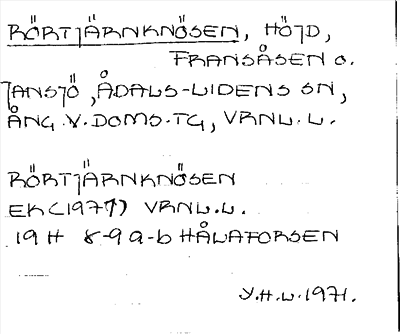 RÖRTJÄRNKNÖSEN, HÖJD,
FRANSÅSEN O.
JANSJÖ, ÅDALS-LIDENS SN,
ÅNG. V. DOMS. TG, VRNL. L.
RÖRTJÄRNKNÖSEN
EK (1971) VRNL. L.
19 H 8-9 a-b HÅLAFORSEN
Y. H. L. 1971.